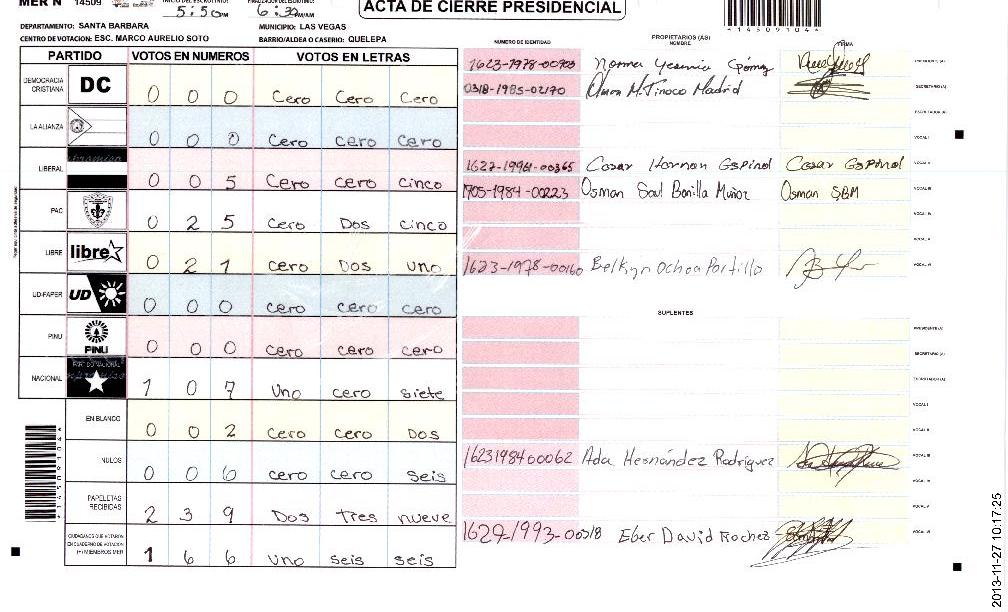 MER N 14509
5:50 PM 6:30 PM/AM
ACTA DE CIERRE PRESIDENCIAL
*145091044*
DEPARTAMENTO: SANTA BARBARA MUNICIPIO: LAS VEGAS
CENTRO DE VOTACION: ESC. MARCO AURELIO SOTO BARRIO/ALDEA O CASERIO: QUELEPA
PARTIDO VOTOS EN NUMEROS VOTOS EN LETRAS
DEMOCRACIA CRISTIANA DC 0 0 0 Cero Cero Cero
LA ALIANZA 0 0 0 Cero cero cero
LIBERAL 0 0 5 Cero cero cinco
PAC 0 2 5 Cero Dos cinco
LIBRE libre 0 2 1 cero Dos uno
UD-FAPER UD 0 0 0 cero cero cero
PINU PINU 0 0 0 cero cero cero
NACIONAL 1 0 7 uno cero siete
EN BLANCO 0 0 2 cero cero Dos
NULOS 0 0 6 cero cero seis
PAPELETAS RECIBIDAS 2 3 9 Dos tres nueve
CIUDADANOS QUE VOTARON EN CUADERNO DE VOTACION (+) MIEMBROS MER 1 6 6 uno seis seis
NUMERO DE IDENTIDAD PROPIETARIOS (AS) NOMBRE FIRMA
Norma Yesenia Gómez
0318-1985-02170 M. Tinoco Madrid SECRETARIO (A)
ESCRUTADOR (A)
VOCAL I
Cesar Hernan Espinal Cesar Espinal VOCAL II
1705-1984-00223 Osman Saul Bonilla Muñoz Osman SBM VOCAL III
VOCAL IV
VOCAL V
1623-1978-00160 Belkyn Ochoa Portillo VOCAL VI
SUPLENTES
PRESIDENTE (A)
SECRETARIO (A)
ESCRUTADOR (A)
VOCAL I
VOCAL II
1623198400062 Ada Hernández Rodríguez VOCAL III
VOCAL IV
VOCAL V
1629-1993-00318 Eber David Rochez VOCAL VI
2013-11-27 10:17:25